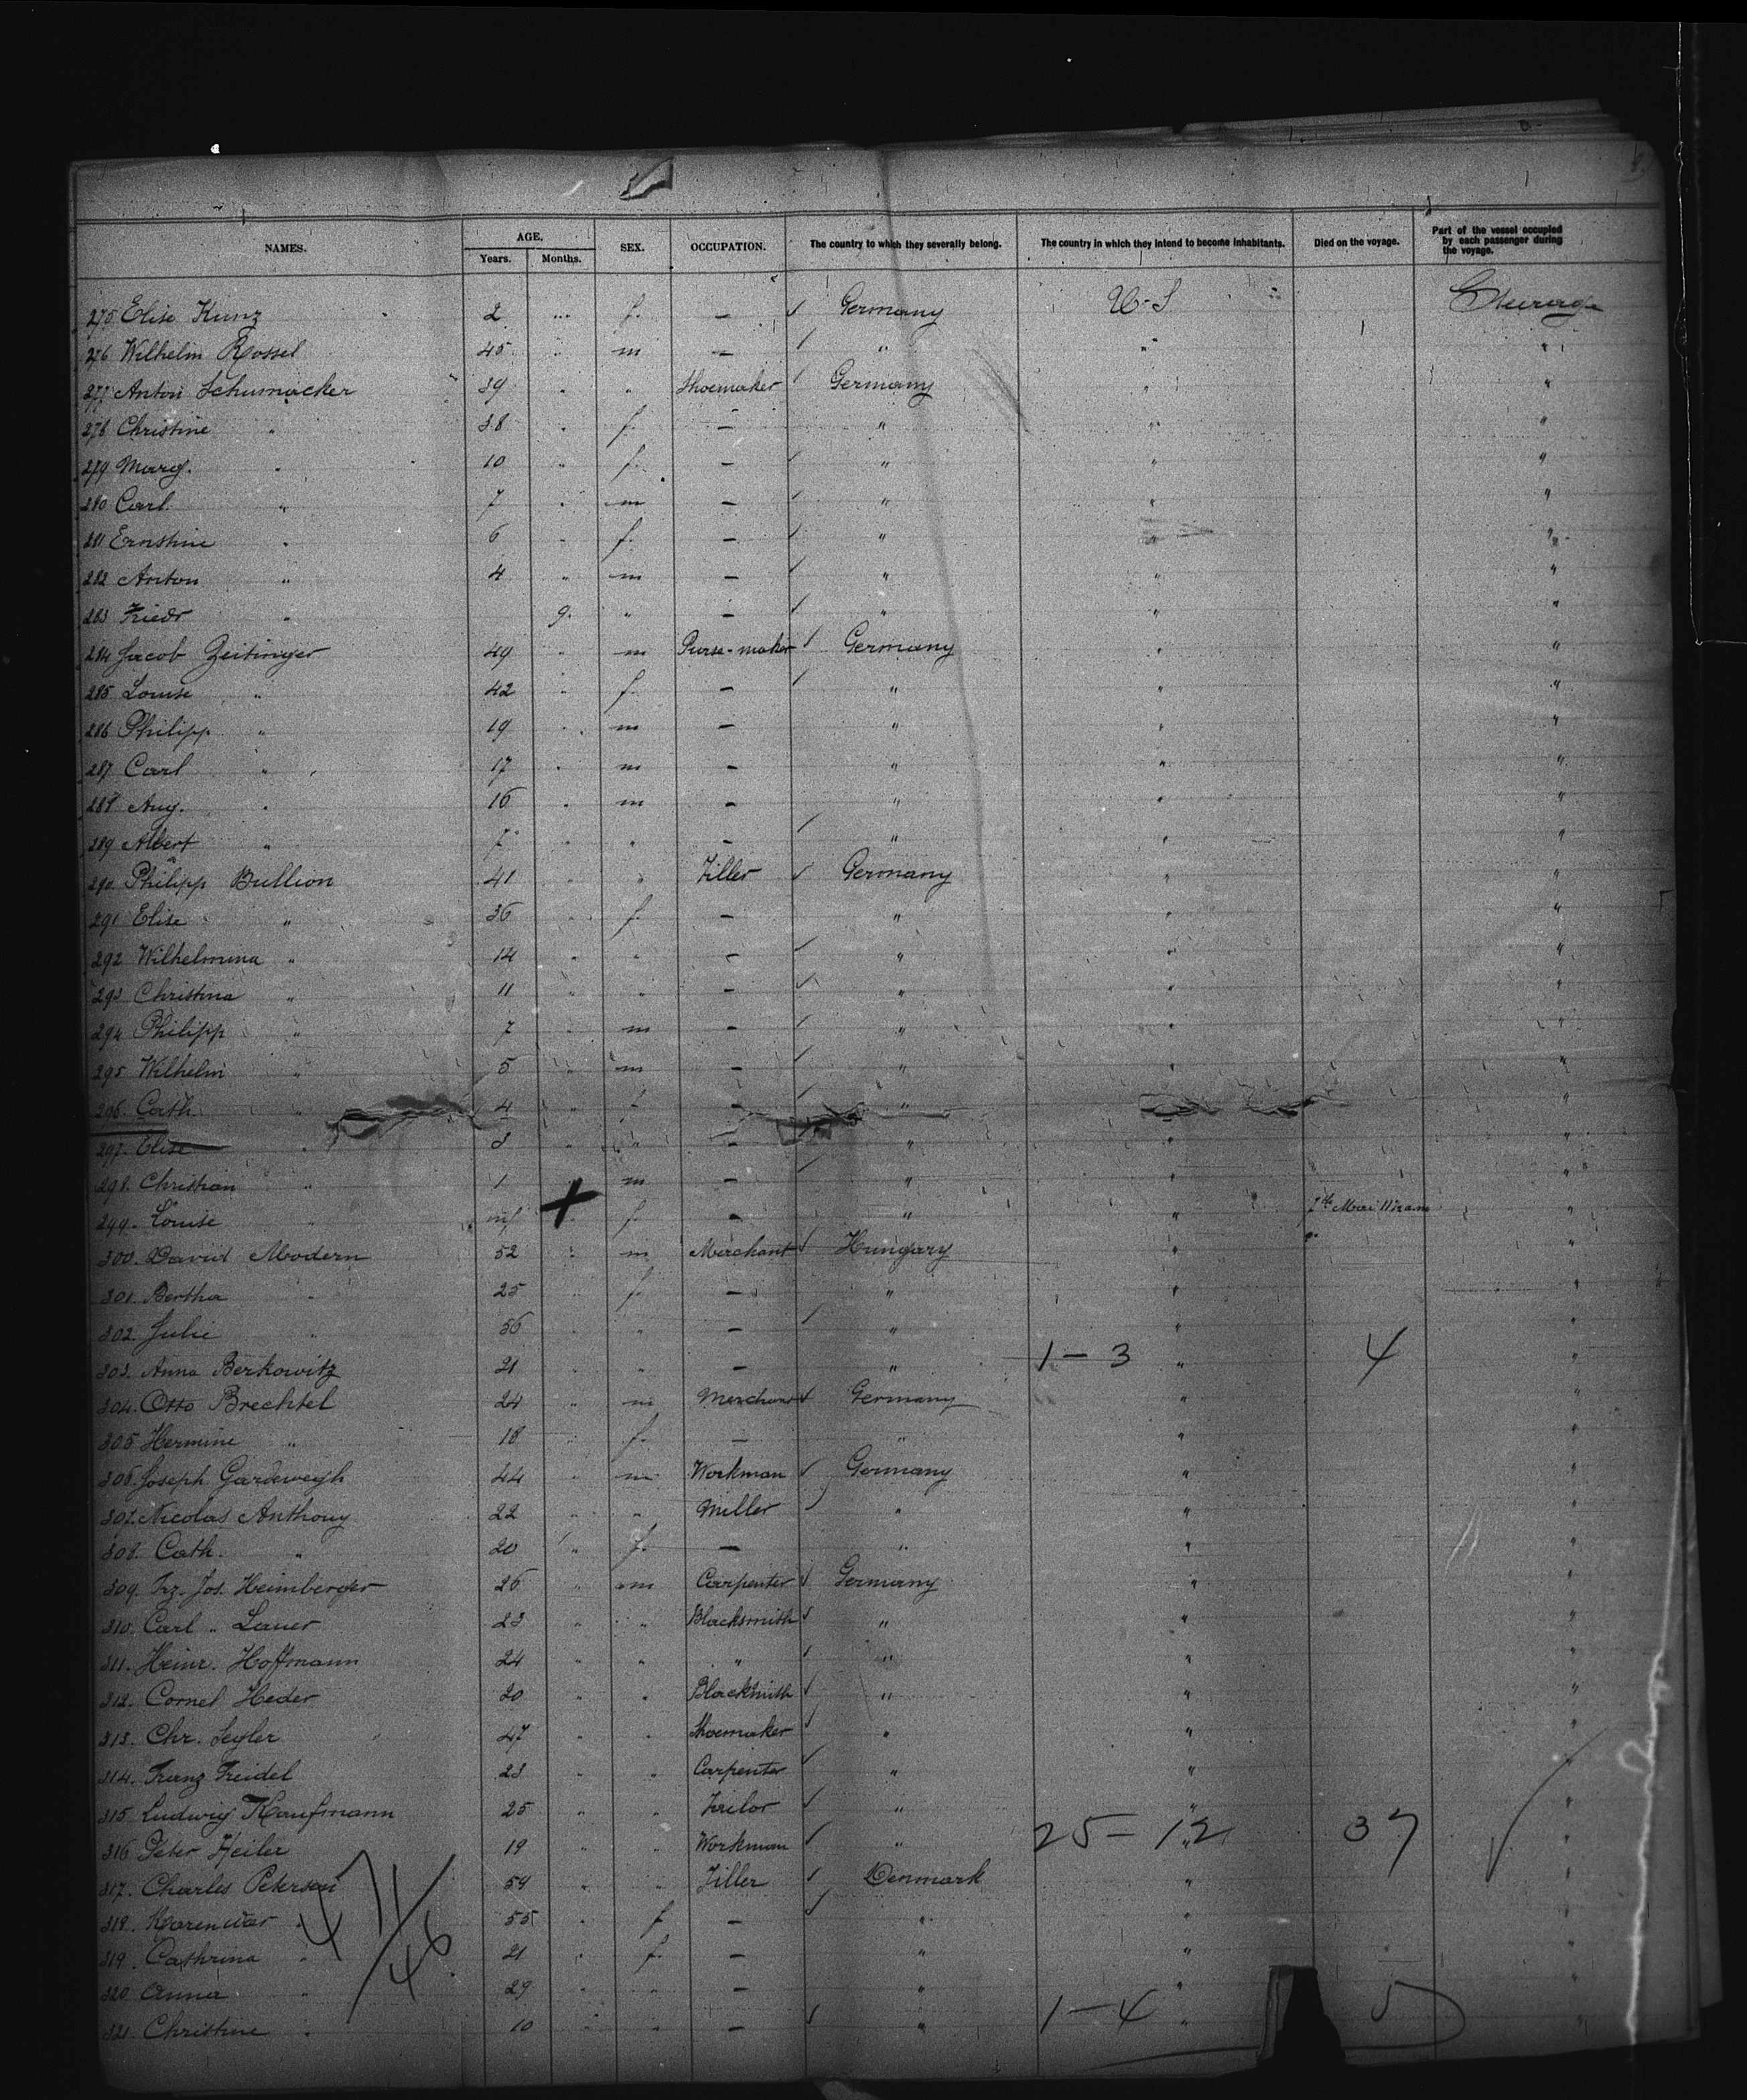 NAMES. AGE. Years. Months. SEX. OCCUPATION. The country to which they severally belong. The country in which they intend to become inhabitants. Died on the voyage. Part of the vessel occupied by each passenger during the voyage.
275 Elise Kunz 2 " f. — Germany U-S Steerage
276 Wilhelm Rossel 45 " m — " " "
277 Anton Schumacker 39 " " Shoemaker Germany " "
278 Christine " 38 " f. — " " "
279 Marg. " 10 " f. — " " "
280 Carl " 7 " m — " " "
281 Ernstine " 6 " f. — " " "
282 Anton " 4 " m — " " "
283 Friedr " 9. " — " " "
284 Jacob Zeitinger 49 " m Purse-maker Germany " "
285 Louise " 42 " f. — " " "
286 Philipp " 19 " m — " " "
287 Carl " 17 " m — " " "
288 Aug. " 16 " m — " " "
289 Albert " 7 " " — " " "
290 Philipp Bullion 41 " " Tiller Germany " "
291 Elise " 36 " f. — " " "
292 Wilhelmina " 14 " " — " " "
293 Christina " 11 " " — " " "
294 Philipp " 7 " m — " " "
295 Wilhelm " 5 " m — " " "
296. Cath. " 4 " f. — " " "
297. Elise " 3 " " — " " "
298. Christian " 1 " m — " " "
299. Louise " inf X f. — " " 7th Mai 11h am "
300. David Modern 52 " m Merchant Hungary " "
301. Bertha " 25 " f. — " " "
302. Julie " 56 " " — " " "
303. Anna Berkowitz 21 " " — " 1-3 " 4 "
304. Otto Brechtel 24 " m Merchant Germany " "
305 Hermine " 18 " f. — " " "
306. Joseph Gardeweyh 44 " m Workman Germany " "
307. Nicolas Anthony 22 " " Miller " " "
308. Cath. " 20 " f. — " " "
309. Frz. Jos. Heimberger 26 " m Carpenter Germany " "
310. Carl " Lauer 23 " " Blacksmith " " "
311. Heinr. Hoffmann 24 " " " " " "
312. Cornel Heder 20 " " Blacksmith " " "
313. Chr. Seyler 47 " " Shoemaker " " "
314. Franz Treidel 23 " " Carpenter " " "
315 Ludwig Kaufmann 25 " " Tailor " " "
316 Peter Heiler 19 " " Workman " 25-12 " 37 "
317. Charles Petersen 54 " " Tiller Denmark " "
318. " 55 " f — " " "
319. Cathrina " 21 " f. — " " "
320 Anna " 29 " " — " " "
321. Christine " 10 " " — " 1-4 " 5 "
41/46